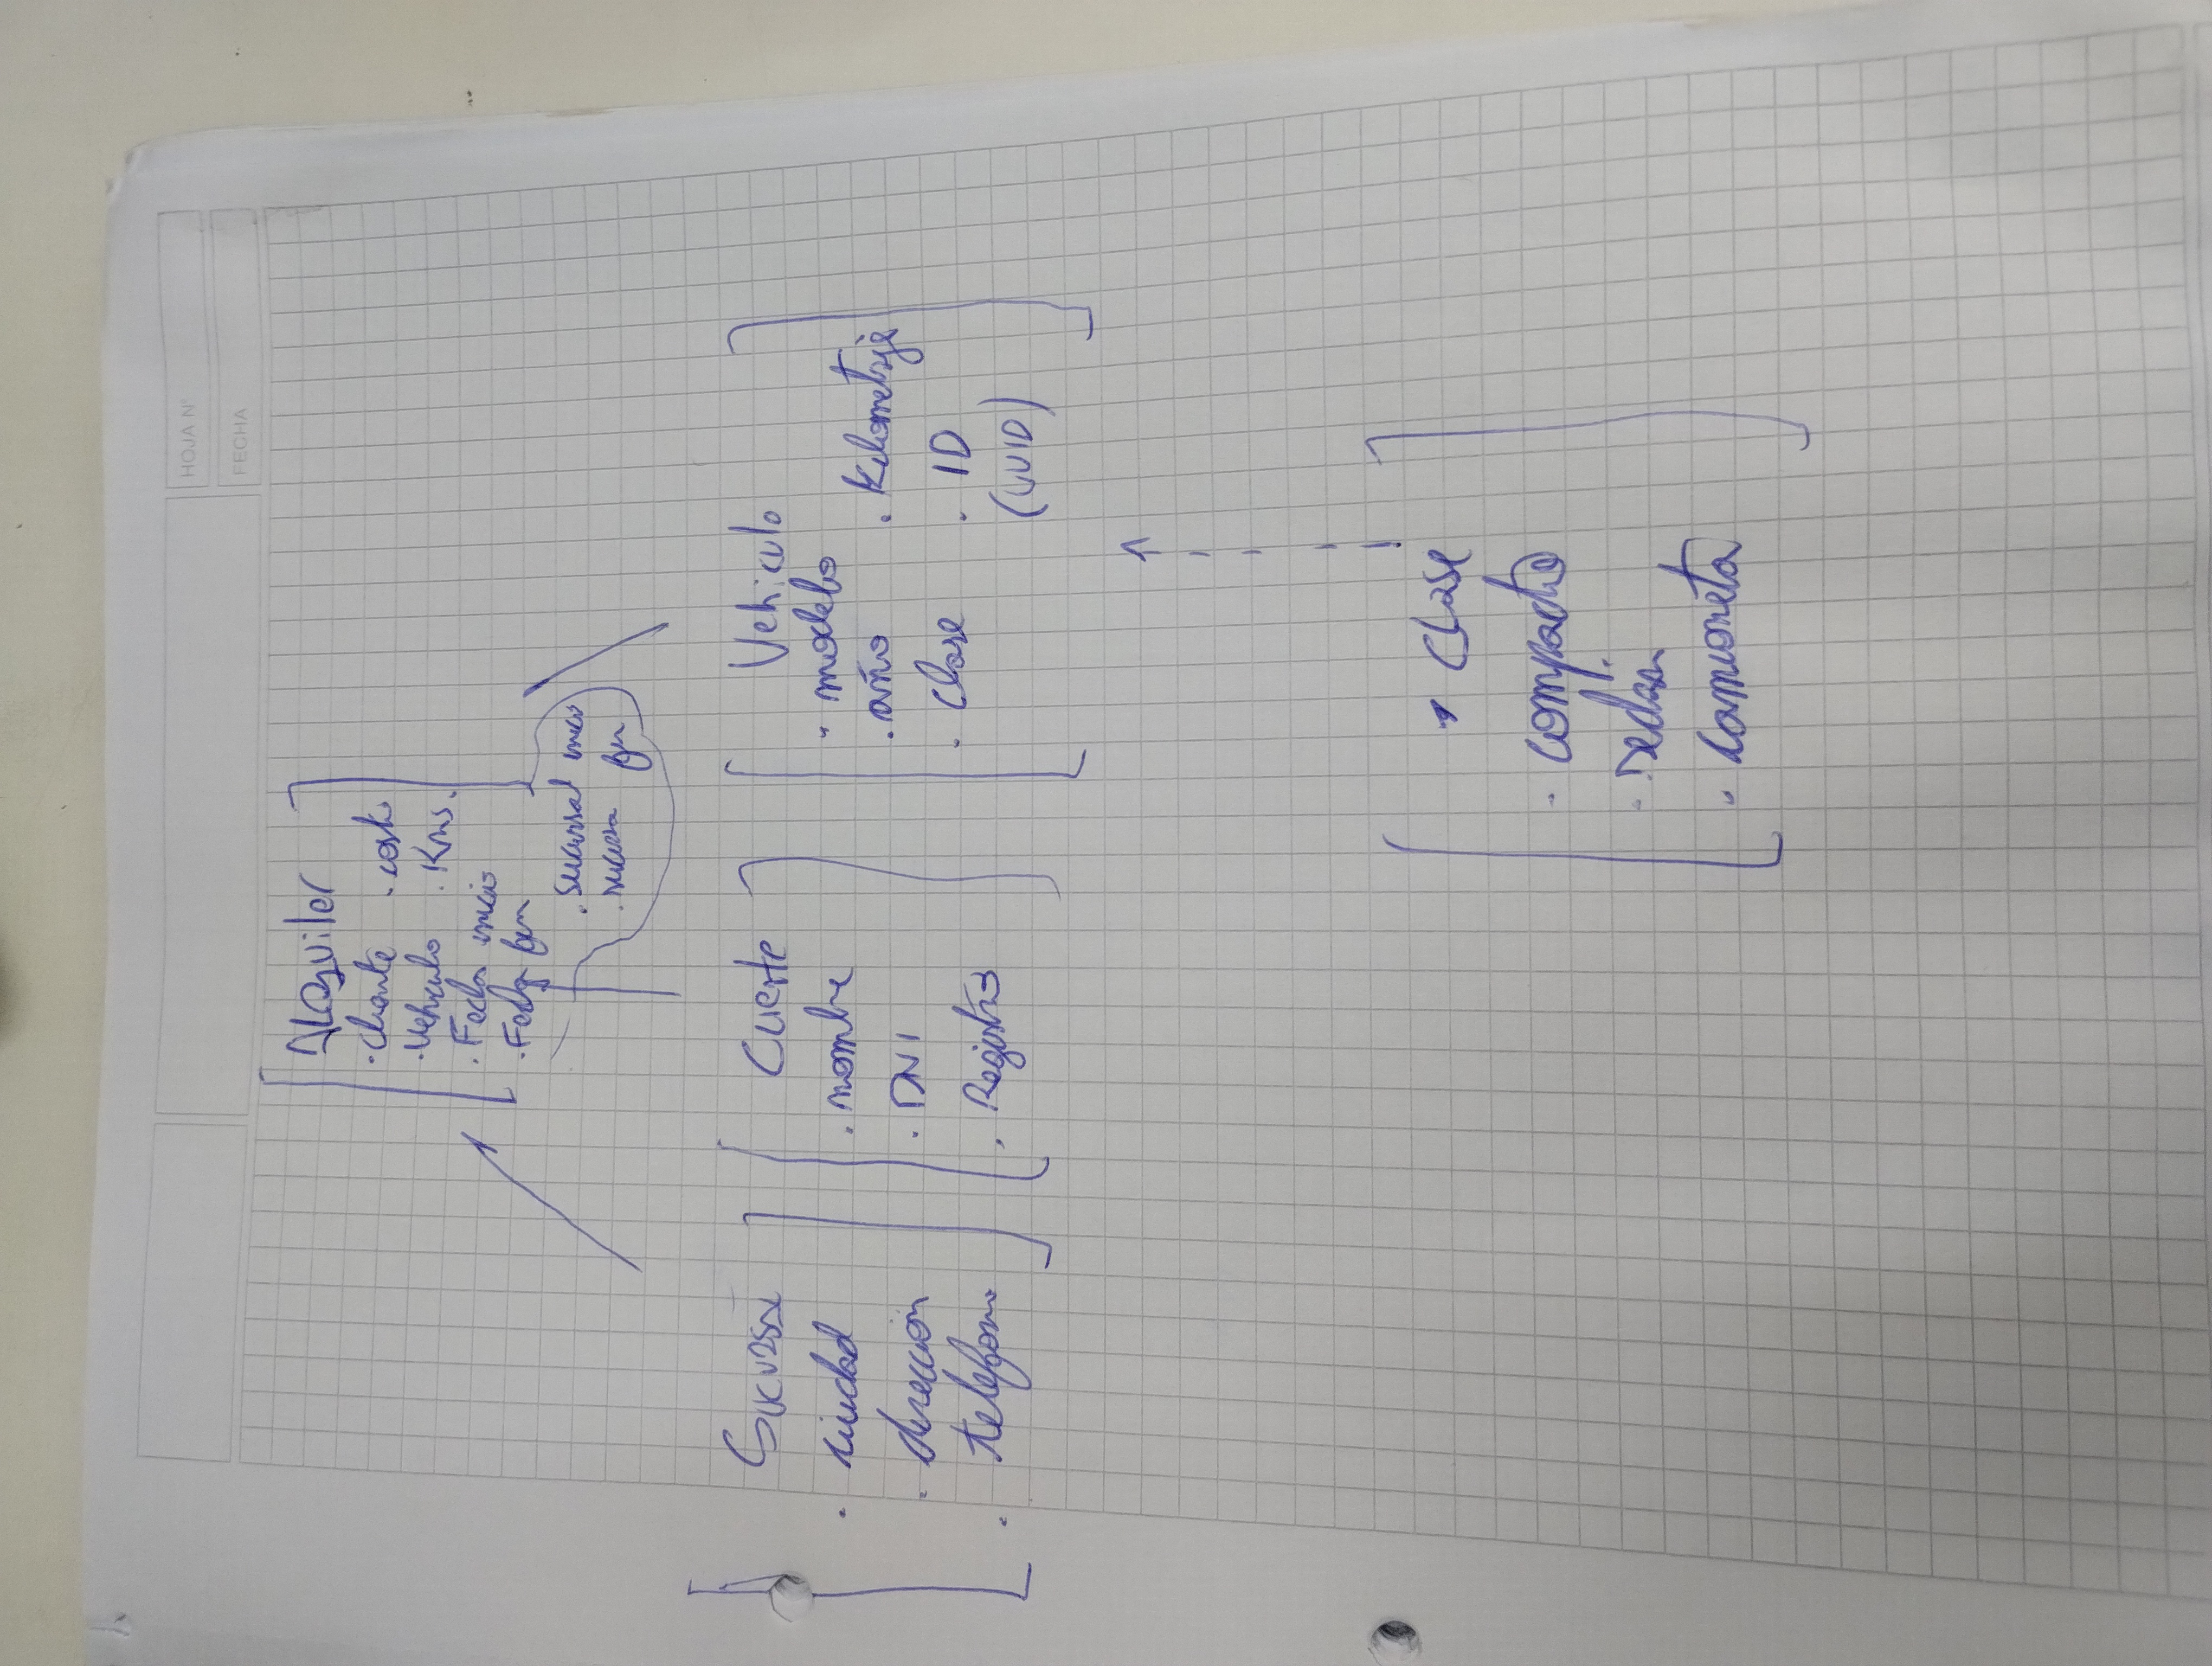 HOJA N°
FECHA
Alquiler
. cliente . costo
. Vehiculo . Kms.
. Fecha inicio
. Fecha fin
. sucursal inicio
. sucursal fin
Sucursal
. ciudad
. dirección
. telefono
Cliente
. nombre
. DNI
. Registro
Vehiculo
. modelo
. año . Kilometraje
. clase . ID
(UUID)
Clase
. compacto
. sedán
. camioneta